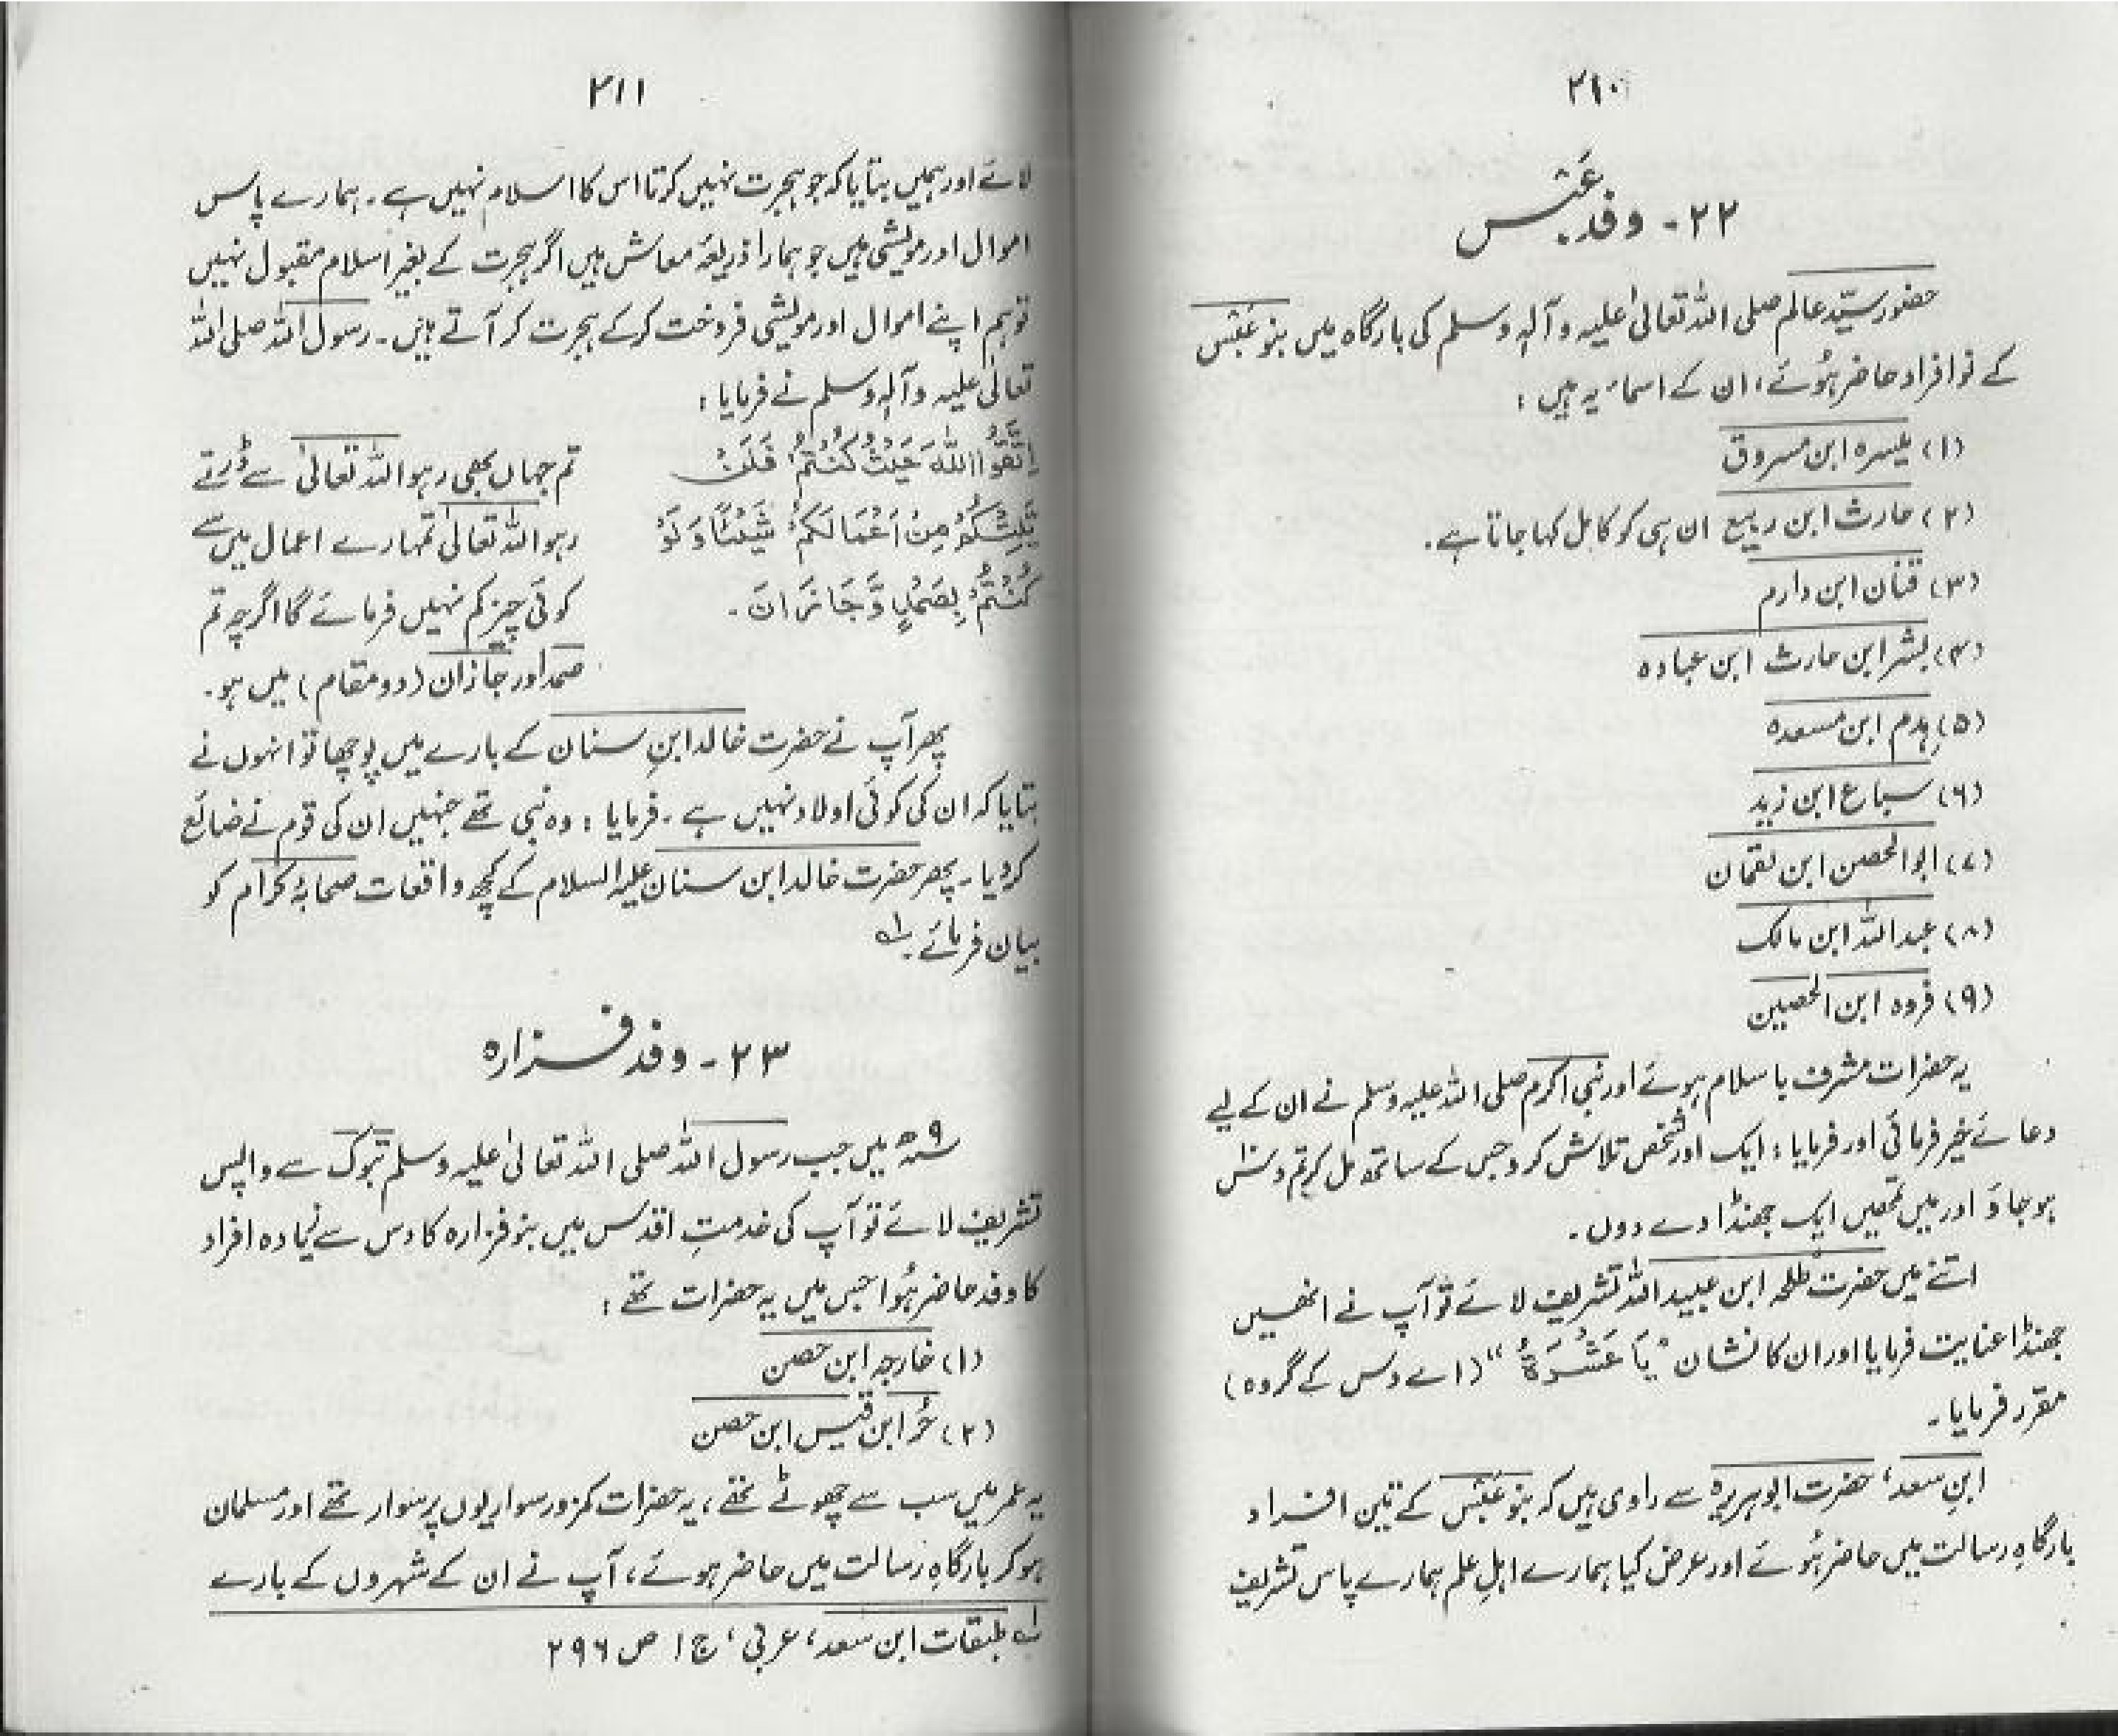 ۲۱۰
۲۲ - وفدِ عَبْس
حضور سیّدِ عالم صلی اللہ تعالیٰ علیہ وآلہٖ وسلم کی بارگاہ میں بنو عَبْس
کے نو افراد حاضر ہُوئے، ان کے اسماء یہ ہیں :
(۱) میسرہ ابن مسروق
(۲) حارث ابن ربیع ان ہی کو کامل کہا جاتا ہے۔
(۳) قنان ابن دارم
(۴) بشر ابن حارث ابن عبادہ
(۵) ہِدم ابن مسعدہ
(۶) سباع ابن زید
(۷) ابو الحصن ابن لقمان
(۸) عبداللہ ابن مالک
(۹) فروہ ابن الحصین
یہ حضرات مشرف باسلام ہوئے اور نبی اکرم صلی اللہ علیہ وسلم نے ان کے لیے
دعائے خیر فرمائی اور فرمایا : ایک اور شخص تلاش کرو جس کے ساتھ مل کر تم دس
ہو جاؤ اور میں تمھیں ایک جھنڈا دے دوں۔
اتنے میں حضرت طلحہ ابن عبیداللہ تشریف لائے تو آپ نے انھیں
جھنڈا عنایت فرمایا اور ان کا نشان "یَا عَشْرَۃُ" (اے دس کے گروہ)
مقرر فرمایا۔
ابنِ سعد، حضرت ابوہریرہ سے راوی ہیں کہ بنو عَبْس کے تین افراد
بارگاہِ رسالت میں حاضر ہُوئے اور عرض کیا ہمارے اہلِ علم ہمارے پاس تشریف
۲۱۱
لائے اور ہمیں بتایا کہ جو ہجرت نہیں کرتا اس کا اسلام نہیں ہے۔ ہمارے پاس
اموال اور مویشی ہیں جو ہمارا ذریعۂ معاش ہیں اگر ہجرت کے بغیر اسلام مقبول نہیں
تو ہم اپنے اموال اور مویشی فروخت کرکے ہجرت کر آتے ہیں۔ رسول اللہ صلی اللہ
تعالیٰ علیہ وآلہٖ وسلم نے فرمایا :
اِتَّقُوا اللّٰہَ حَیْثُ کُنْتُمْ فَلَنْ
یَّلِتْکُمْ مِنْ اَعْمَالِکُمْ شَیْئًا وَلَوْ
کُنْتُمْ بِصَمْدٍ وَّجَازَانَ۔
تم جہاں بھی رہو اللہ تعالیٰ سے ڈرتے
رہو اللہ تعالیٰ تمہارے اعمال میں سے
کوئی چیز کم نہیں فرمائے گا اگرچہ تم
صمد اور جازان (دو مقام) میں ہو۔
پھر آپ نے حضرت خالد ابنِ سنان کے بارے میں پوچھا تو انہوں نے
بتایا کہ ان کی کوئی اولاد نہیں ہے۔ فرمایا : وہ نبی تھے جنہیں ان کی قوم نے ضائع
کردیا۔ پھر حضرت خالد ابن سنان علیہ السلام کے کچھ واقعات صحابۂ کرام کو
بیان فرمائے۔ لہ
۲۳ - وفد فزارہ
۹ھ میں جب رسول اللہ صلی اللہ تعالیٰ علیہ وسلم تبوک سے واپس
تشریف لائے تو آپ کی خدمتِ اقدس میں بنو فزارہ کا دس سے زیادہ افراد
کا وفد حاضر ہُوا جس میں یہ حضرات تھے :
(۱) خارجہ ابن حصن
(۲) حُر ابن قیس ابن حصن
یہ عمر میں سب سے چھوٹے تھے، یہ حضرات کمزور سواریوں پر سوار تھے اور مسلمان
ہو کر بارگاہِ رسالت میں حاضر ہوئے، آپ نے ان کے شہروں کے بارے
لہ طبقات ابن سعد، عربی، ج ۱ ص ۲۹۶